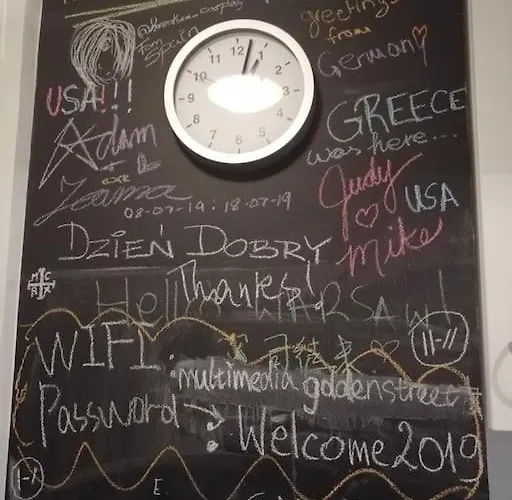 @ cosplay
from
Spain
greetings
from
Germany
12 1 2 3 4 5 6 7 8 9 10 11
USA!!!
GREECE
was here...
Adam
+
Judy
USA
Mike
08-07-19 : 18-07-19
DZIEŃ DOBRY
Thanks!
Hello WARSAW!
11-11
WIFI : multimedia goldenstreet
Password → : Welcome2019
E.